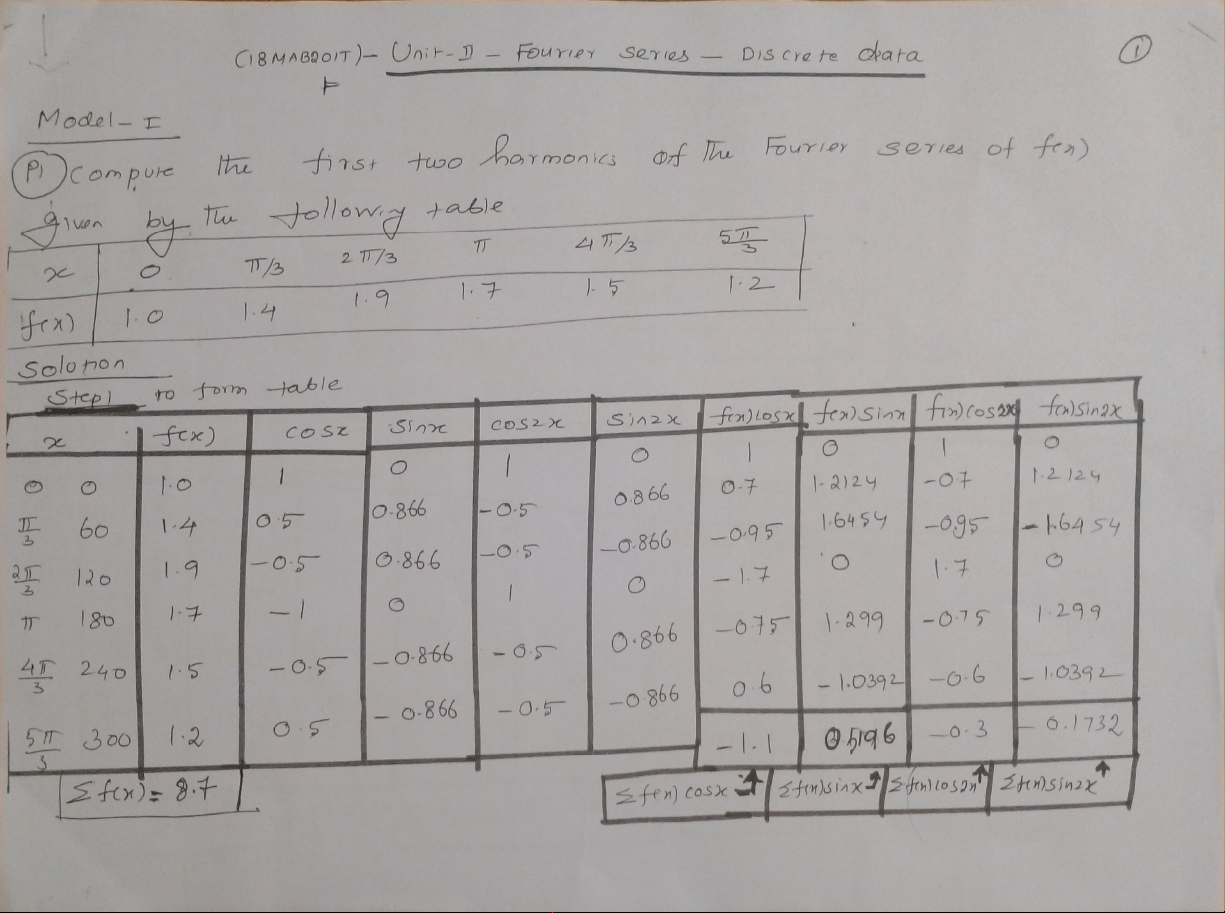 (18MAB201T)- Unit-II - Fourier series - Discrete data
1
Model-I
P1 compute the first two harmonics of the Fourier series of f(x)
given by the following table
x 0 π/3 2π/3 π 4π/3 5π/3
f(x) 1.0 1.4 1.9 1.7 1.5 1.2
Solotion
Step1 to form table
x f(x) cosx sinx cos2x sin2x f(x)cosx f(x)sinx f(x)cos2x f(x)sin2x
0 0 1.0 1 0 1 0 1 0 1 0
π/3 60 1.4 0.5 0.866 -0.5 0.866 0.7 1.2124 -0.7 1.2124
2π/3 120 1.9 -0.5 0.866 -0.5 -0.866 -0.95 1.6454 -0.95 -1.6454
π 180 1.7 -1 0 1 0 -1.7 0 1.7 0
4π/3 240 1.5 -0.5 -0.866 -0.5 0.866 -0.75 1.299 -0.75 1.299
5π/3 300 1.2 0.5 -0.866 -0.5 -0.866 0.6 -1.0392 -0.6 -1.0392
-1.1 0.5196 -0.3 -0.1732
Σf(x)= 8.7 Σf(x)cosx ↑ Σf(x)sinx ↑ Σf(x)cos2x ↑ Σf(x)sin2x ↑